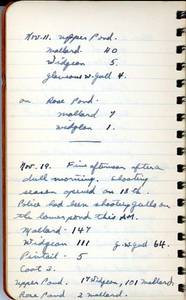 Nov. 11. Upper Pond.
Mallard 40
Widgeon 5.
Glaucous W. gull 4.
on Rose Pond.
mallard 7
widgeon 1.
Nov. 19. Fine afternoon after a
dull morning. Shooting
season opened on 18th.
Police had been shooting gulls on
the lower pond this AM.
Mallard 147
Widgeon 111 g.w gull 64.
Pintail 5
Coot 2.
Upper Pond. 17 Widgeon, 101 mallard,
Rose Pond 2 mallard.